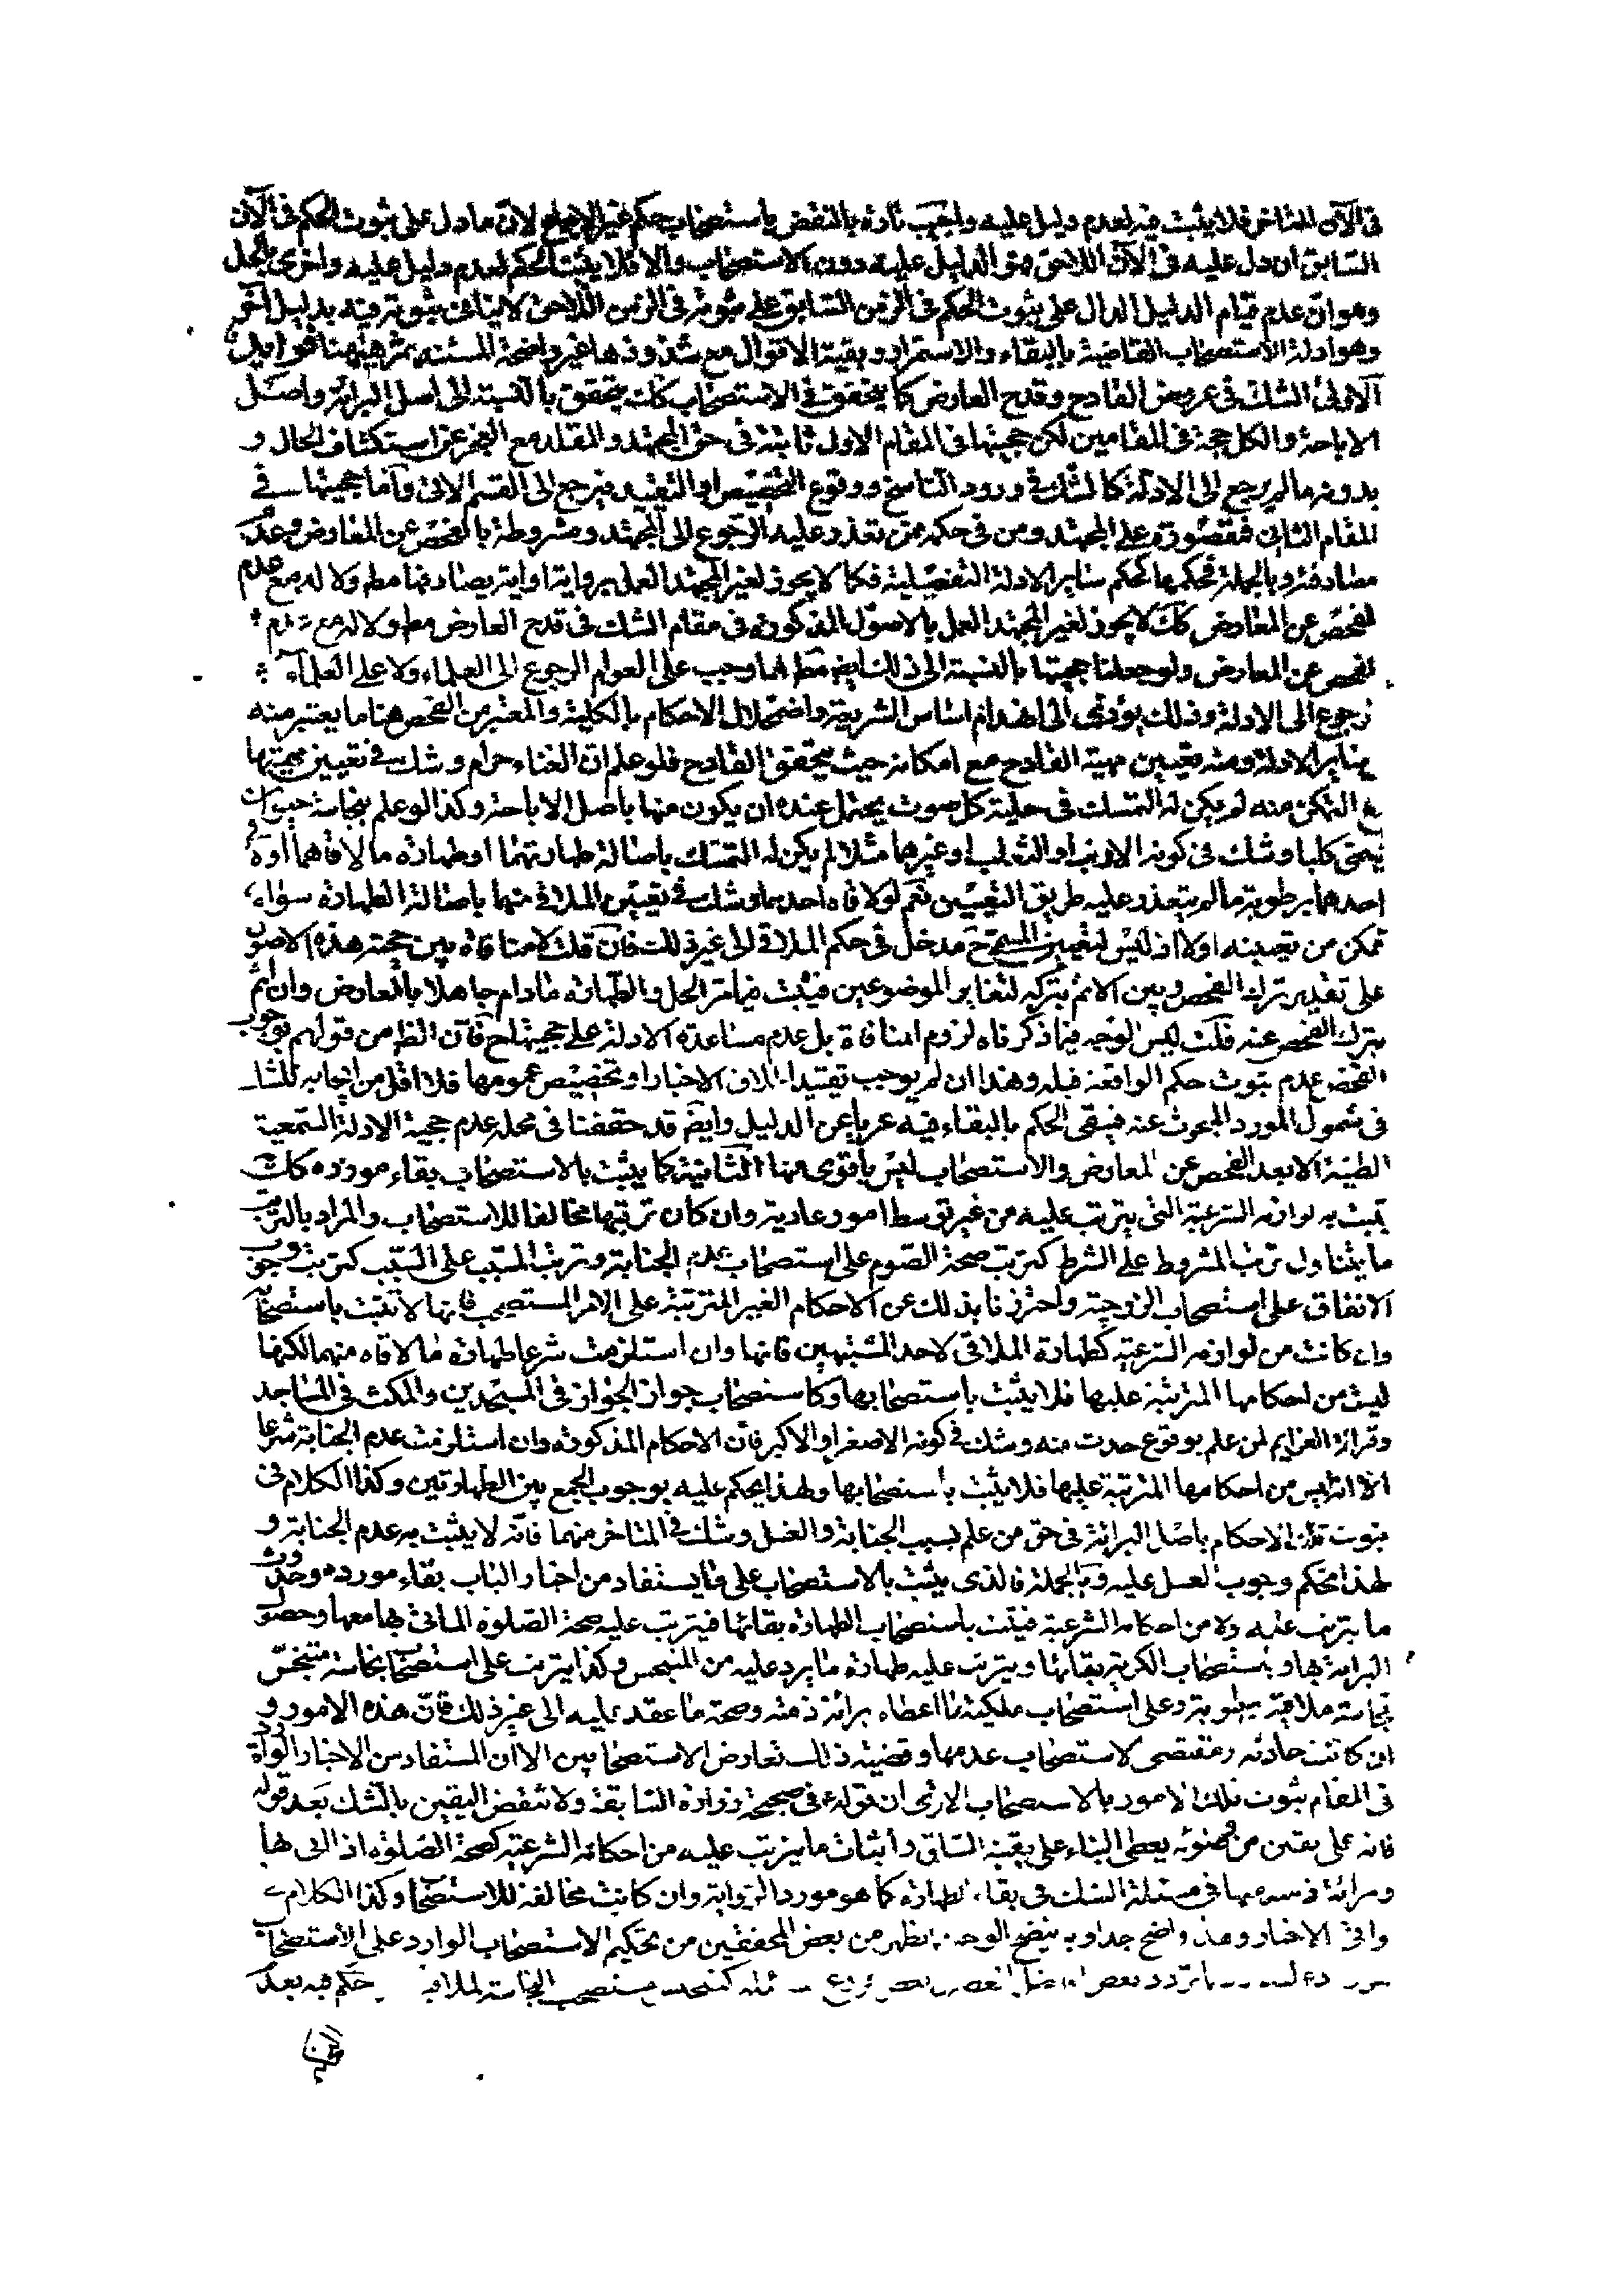 فى الآن المتاخر فلا يثبت فيه لعدم دليل عليه واجيب تارة بالنقض باستصحاب حكم غير الاجماع لانّ ما دل على ثبوت الحكم فى الآن
السّابق ان دل عليه فى الآن اللاحق فهو الدليل عليه دون الاستصحاب والا فلا يثبت الحكم لعدم دليل عليه واخرى بالحل
وهو انّ عدم قيام الدليل الدال على ثبوت الحكم فى الزمن السّابق على ثبوته فى الزمن اللاحق لا ينافى ثبوته فيه بدليل آخر
وهو ادلة الاستصحاب القاضية بالبقاء والاستمرار وبقية الاقوال مع شذوذها غير واضحة المستند ثم هيهنا فوايد
الاولى الشك فى عروض القادح وقدح العارض كما يتحقق فى الاستصحاب كك يتحقق بالنسبة الى اصل البرائة واصل
الاباحة والكل حجة فى المقامين لكن حجيتها فى المقام الاول ثابتة فى حق المجتهد والمقلد مع العجز عن استكشاف الحال و
بدونه ما لم يرجع الى الادلة كالشك فى ورود الناسخ ووقوع التخصيص او التقييد فيرجع الى القسم الاتى وامّا حجيتها فى
المقام الثانى فمقصورة على المجتهد ومن فى حكمه ممن تعذر عليه الرجوع الى المجتهد ومشروطة بالفحص عن المعارض وعدم
مصادفته وبالجملة فحكمها كحكم ساير الادلة التفصيلية فكما لا يجوز لغير المجتهد العمل برواية او اية يصادفها مط ولا له مع عدم
الفحص عن المعارض كك لا يجوز لغير المجتهد العمل بالاصول المذكورة فى مقام الشك فى قدح العارض مط ولا له مع عدم
الفحص عن المعارض ولو جعلنا حجيتها بالنسبة الى مط لما وجب على العوام الرجوع الى العلماء ولا على العلماء
الرجوع الى الادلة وذلك يؤدى الى انهدام اساس الشريعة واضمحلال الاحكام بالكلية والمعتبر من الفحص هنا ما يعتبر منه
فى ساير الادلة ومنه تعيين مهية القادح مع امكانه حيث يتحقق القادح فلو علم ان الغناء حرام وشك فى تعيين مهيتها
مع التمكن منه لم يكن له التمسك فى حلية كل صوت يحتمل عنده ان يكون منها باصل الاباحة وكذا لو علم بنجاسة حيوان
يسمى كلبا وشك فى كونه الارنب او الثعلب او غيرهما مثلا لم يكن له التمسك باصالة طهارتهما او طهارة ما لاقاهما او
احدهما برطوبة ما لم يتعذر عليه طريق التعيين نعم لو لاقاه احدهما وشك فى تعيين الملاقى منهما باصالة الطهارة سواء
تمكن من تعيينه اولا اذ ليس لتعيين ح مدخل فى حكم الملاقى الى غير ذلك فان قلت لا منافاة بين حجية هذه الاصول
على تقدير ترك الفحص وبين الاثم بتركه لتغاير الموضوعين فيثبت فيما مر الحل والطهارة ما دام جاهلا بالمعارض وان اثم
بترك الفحص عنه قلت ليس الوجه فيما ذكرناه لزوم المنافاة بل عدم مساعدة الادلة على حجيتها ح فان الظ من قولهم بوجوب
الفحص عدم ثبوت حكم الواقعة قبله وهذا ان لم يوجب تقييد اطلاق الاخبار او تخصيص عمومها فلا اقل من ايجابه للشك
فى شمول المورد المبحوث عنه فيبقى الحكم بالبقاء فيه عريا عن الدليل وايضا قد حققنا فى محله عدم حجية الادلة السمعية
الظنية الا بعد الفحص عن المعارض والاستصحاب ليس باقوى منها الثانية كما يثبت بالاستصحاب بقاء مورده كك
يثبت به لوازمه الشرعية التى يترتب عليه من غير توسط امور عادية وان كان ترتبها مخالفا للاستصحاب والمراد بالترتب
ما يتناول ترتب المشروط على الشرط كترتب صحة الصوم على استصحاب عدم الجنابة وترتب المسبب على السبب كترتب وجوب
الانفاق على استصحاب الزوجية واحترزنا بذلك عن الاحكام الغير المترتبة على الامر المستصحب فانها لا تثبت باستصحابه
وان كانت من لوازمه الشرعية كطهارة الملاقى لاحد المشتبهين فانها وان استلزمت شرعا طهارة ما لاقاه منهما لكنها
ليست من احكامها المترتبة عليها فلا يثبت باستصحابها وكاستصحاب جواز الجواز فى المسجدين والمكث فى المساجد
وقرائة العزايم لمن علم بوقوع حدث منه وشك فى كونه الاصغر او الاكبر فان الاحكام المذكورة وان استلزمت عدم الجنابة شرعا
الا انه ليس من احكامها المترتبة عليها فلا يثبت باستصحابها ولهذا يحكم عليه بوجوب الجمع بين الطهارتين وكذا الكلام فى
ثبوت تلك الاحكام باصل البرائة فى حق من علم بسبب الجنابة والغسل وشك فى المتاخر منهما فانه لا يثبت به عدم الجنابة و
لهذا نحكم وجوب الغسل عليه وبالجملة فالذى يثبت بالاستصحاب على ما يستفاد من اخبار الباب بقاء مورده وحدوث
ما يترتب عليه اولا من احكامه الشرعية فيثبت باستصحاب الطهارة بقائها فيترتب عليه صحة الصلوة الماتى بها معها وحصول
البرائة بها وباستصحاب الكرية بقائها ويترتب عليه طهارة ما يرد عليه من المتنجس وكذا يترتب على استصحاب نجاسة متنجس
نجاسة ملاقيه برطوبة وعلى استصحاب ملكية ما اعطاه برائة ذمته وصحة ما عقد عليه الى غير ذلك فان هذه الامور و
ان كانت حادثة ومقتضى الاستصحاب عدمها وقضية ذلك تعارض الاستصحابين الا ان المستفاد من الاخبار الواردة
فى المقام ثبوت تلك الامور بالاستصحاب الا ترى ان قوله ع فى صحيحة زرارة السابقة ولا تنقض اليقين بالشك بعد قوله
فانه على يقين من وضوئه يعطى البناء على يقينه السابق واثبات ما يترتب عليه من احكامه الشرعية كصحة الصلوة اذا اتى بها
وبرائة ذمته بها فى مسئلة الشك فى بقاء الطهارة كما هو مورد الرواية وان كانت مخالفة للاستصحاب وكذا الكلام
باقى الاخبار وهذا واضح جدا وبه يتضح الوجه يظهر من بعض المحققين من تحكيم الاستصحاب الوارد على الاستصحاب
تردد بعض مستصحب النجاسة لملاقيه حكم فيه بعد